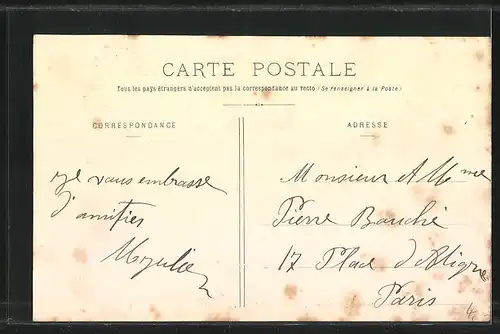 CARTE POSTALE
Tous les pays étrangers n'acceptent pas la correspondance au recto (Se renseigner à la Poste)
CORRESPONDANCE
ADRESSE
Je vous embrasse
d'amitiés
Monsieur et Mme
Pierre Bauché
17 Place d'Aligre
Paris